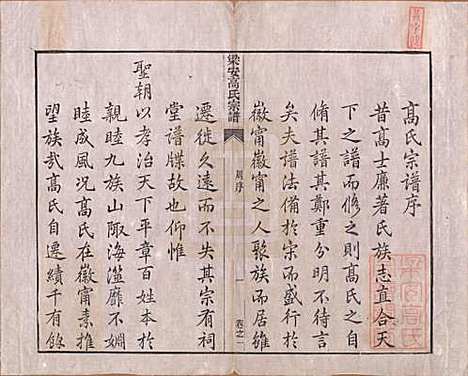 高氏宗譜序
昔高士廉著氏族志直合天
下之譜而修之則高氏之自
脩其譜其鄭重分明不待言
矣夫譜法備於宋而盛行於
徽甯徽甯之人聚族而居雖
梁安高氏宗譜
周序
一
卷之一
遷徙久遠而不失其宗有祠
堂譜牒故也仰惟
聖朝以孝治天下平章百姓本於
親睦九族山陬海澨靡不婣
睦成風况高氏在徽甯素推
望族哉高氏自遷績千有餘